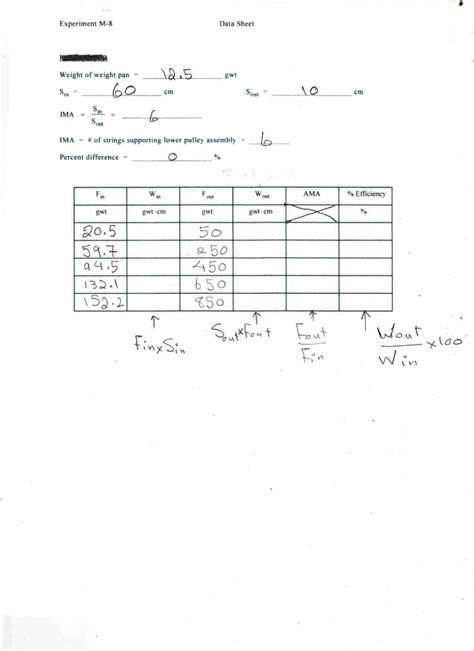 Experiment M-8 Data Sheet
Weight of weight pan = 12.5 gwt
S in = 60 cm S out = 10 cm
IMA = S in / S out = 6
IMA = # of strings supporting lower pulley assembly = 6
Percent difference = 0 %
F in W in F out W out AMA % Efficiency
gwt gwt-cm gwt gwt-cm %
20.5 50
59.7 250
94.5 450
132.1 650
152.2 850
Fin x Sin Sout x Fout Fout / Fin Wout / Win x100